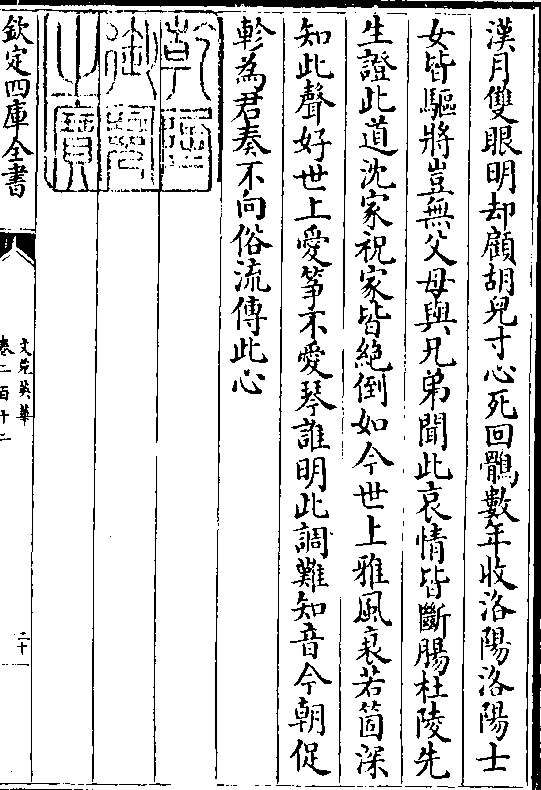 漢月雙眼明却顧胡兒寸心死回鶻數年收洛陽洛陽士
女皆驅將豈無父母與兄弟聞此哀情皆斷腸杜陵先
生證此道沈家祝家皆絶倒如今世上雅風衰若箇深
知此聲好世上愛箏不愛琴誰明此調難知音今朝促
軫為君奏不向俗流傳此心
乾隆
御覽
之寶
欽定四庫全書
文苑英華
卷二百十二
二十